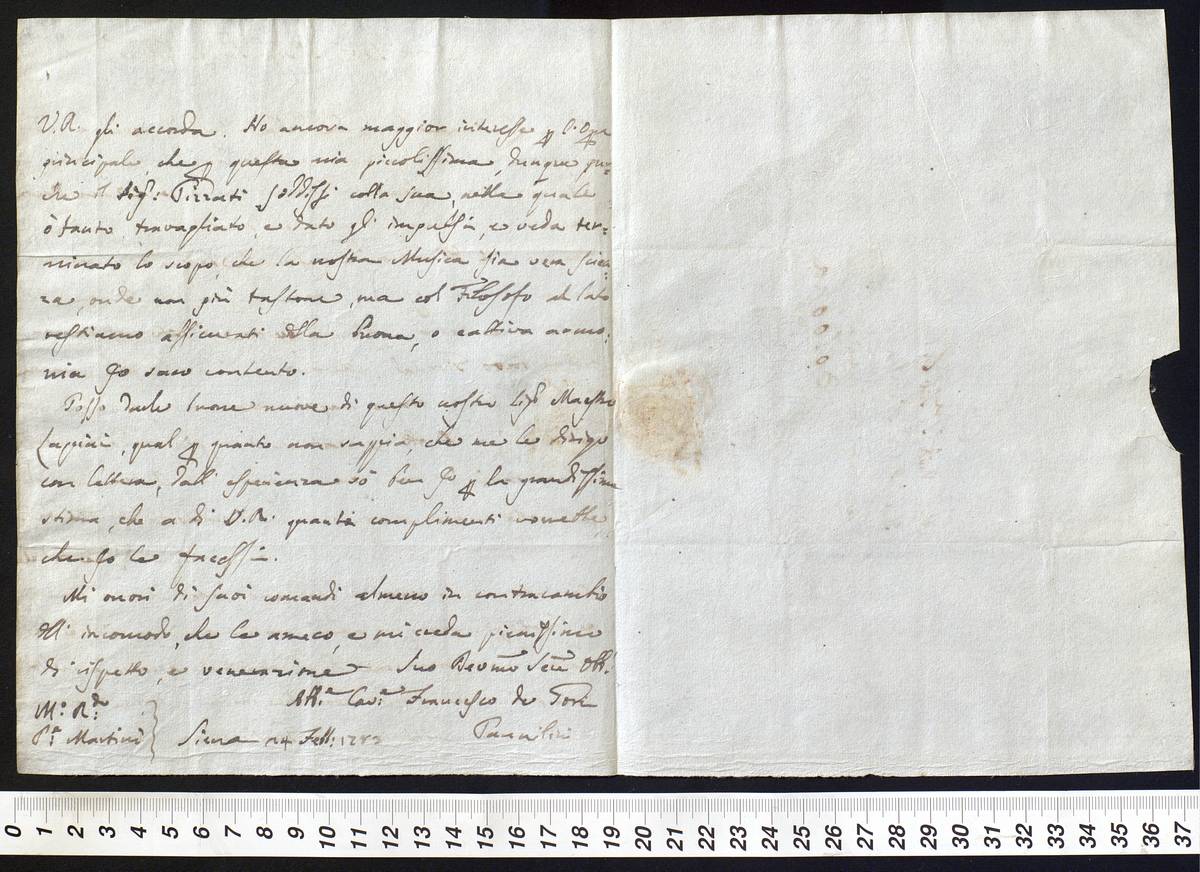 V.R. gli accorda. Ho ancora maggior interesse p l'Opra
principale, che p questa mia piccolissima, dunque pu-
che il Sig: Pizzati soddisfi colla sua, nella quale
ò tanto travagliato, e dato gl'impulsi, e veda ter=
minato lo scopo, che la nostra Musica sia vera scien-
za, onde non più tastone, ma col Filosofo al lato
restiamo assicurati della buona, o cattiva armo:
nia Jo saro contento.
Posso darle buone nuove di questo nostro Sig Maestro
qual p quanto non sappia, che me le dirigo
con lettera, dall' esperienza sò ben Jo p la grandissima
stima, che a di V.R. quanti complimenti vorrebbe,
che Jo le facessi.
Mi onori di suoi comandi almeno in contracambio
dell' incomodo, che le areco, e mi creda pienissimo
di rispetto, e venerazione Suo Devmo Serv Obb.
Aff. Cav. Francesco de
M. R.do
P. Martini Siena 24 Feb: 178
Pannilini
0 1 2 3 4 5 6 7 8 9 10 11 12 13 14 15 16 17 18 19 20 21 22 23 24 25 26 27 28 29 30 31 32 33 34 35 36 37